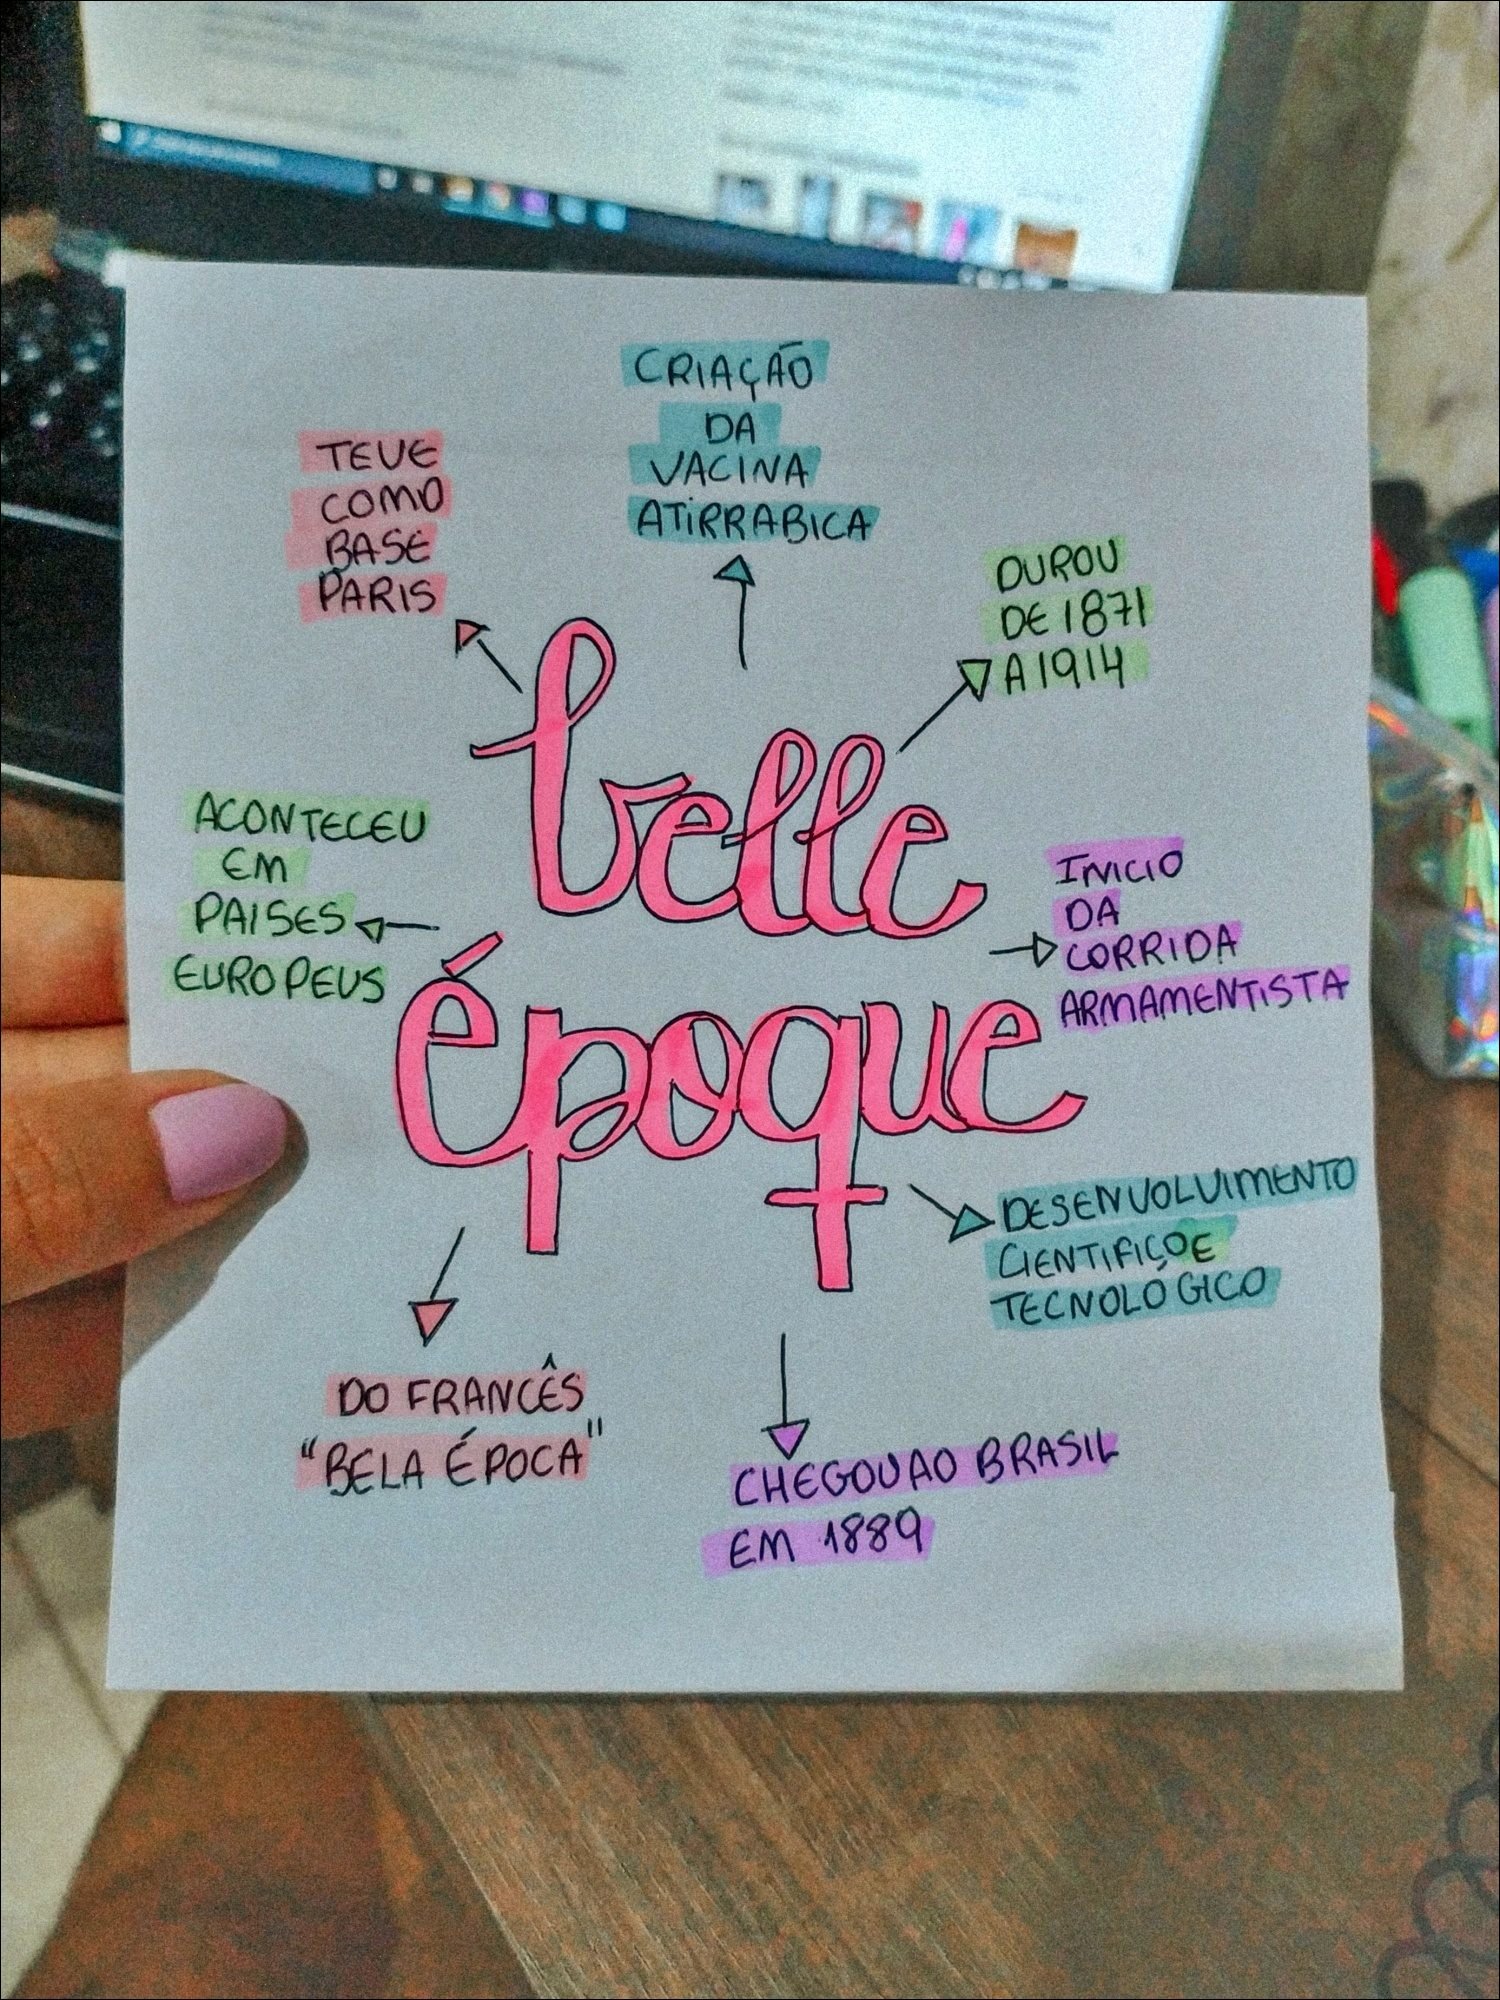 CRIAÇÃO
DA
VACINA
ATIRRABICA
TEVE
COMO
BASE
PARIS
DUROU
DE 1871
A 1914
belle
époque
ACONTECEU
EM
PAISES
EUROPEUS
INICIO
DA
CORRIDA
ARMAMENTISTA
DESENVOLVIMENTO
CIENTIFICO E
TECNOLÓGICO
DO FRANCÊS
"BELA ÉPOCA"
CHEGOU AO BRASIL
EM 1889